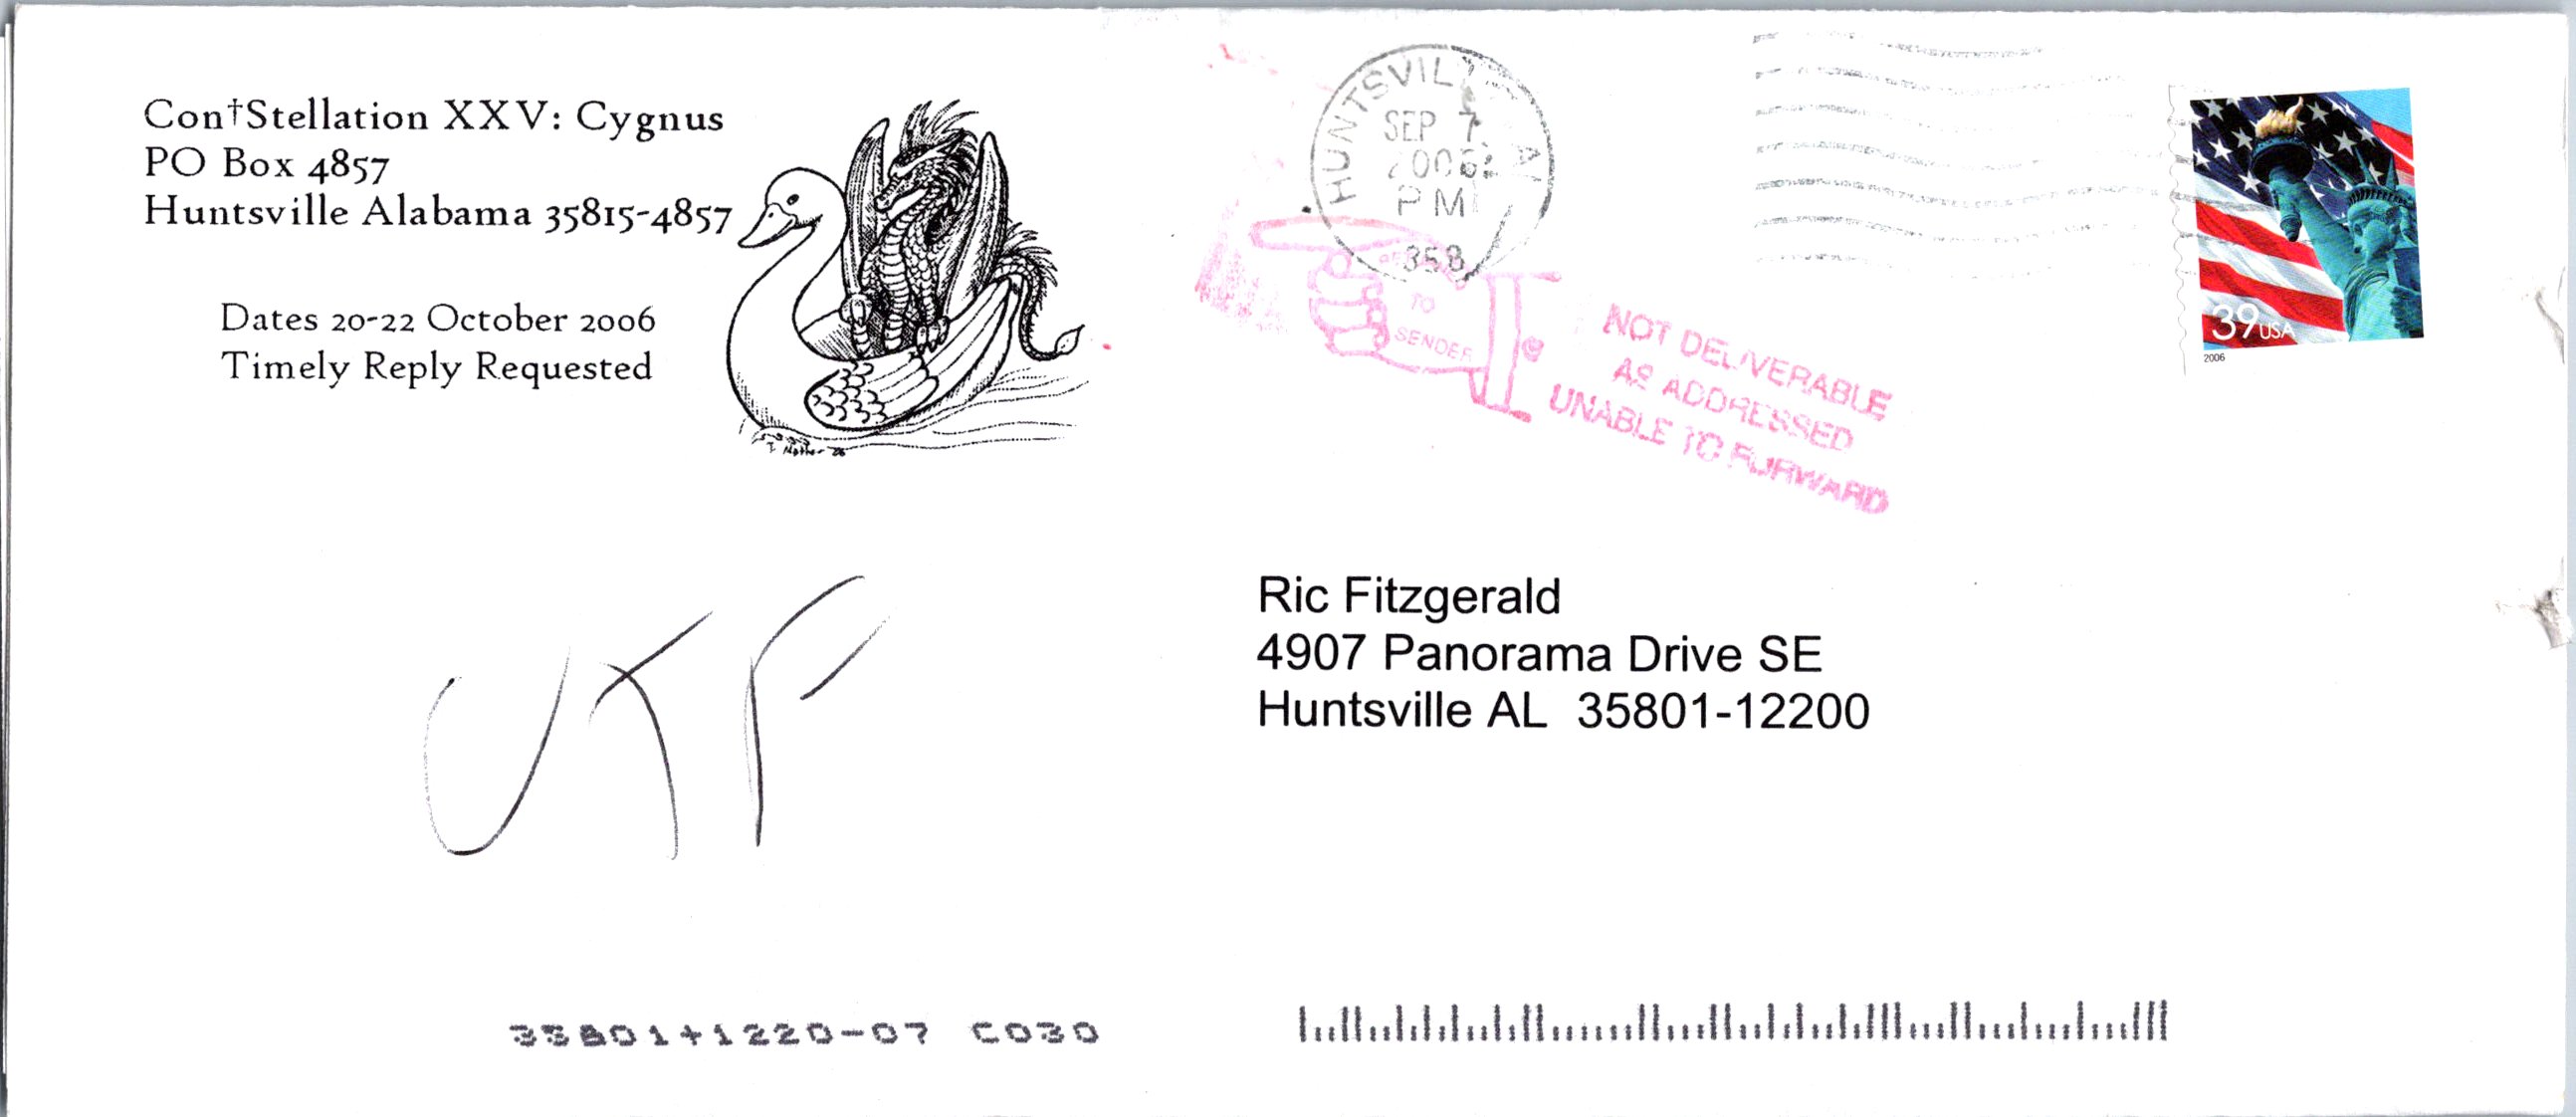 Con†Stellation XXV: Cygnus
PO Box 4857
Huntsville Alabama 35815-4857
Dates 20-22 October 2006
Timely Reply Requested
HUNTSVILLE AL
SEP 7
2006
PM
358
TO
SENDER
NOT DELIVERABLE
AS ADDRESSED
UNABLE TO FORWARD
39 USA
2006
UTF
Ric Fitzgerald
4907 Panorama Drive SE
Huntsville AL 35801-12200
35801+1220-07 C030